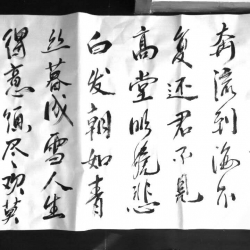 奔流到海不
复还君不见
高堂明镜悲
白发朝如青
丝暮成雪人生
得意须尽欢莫